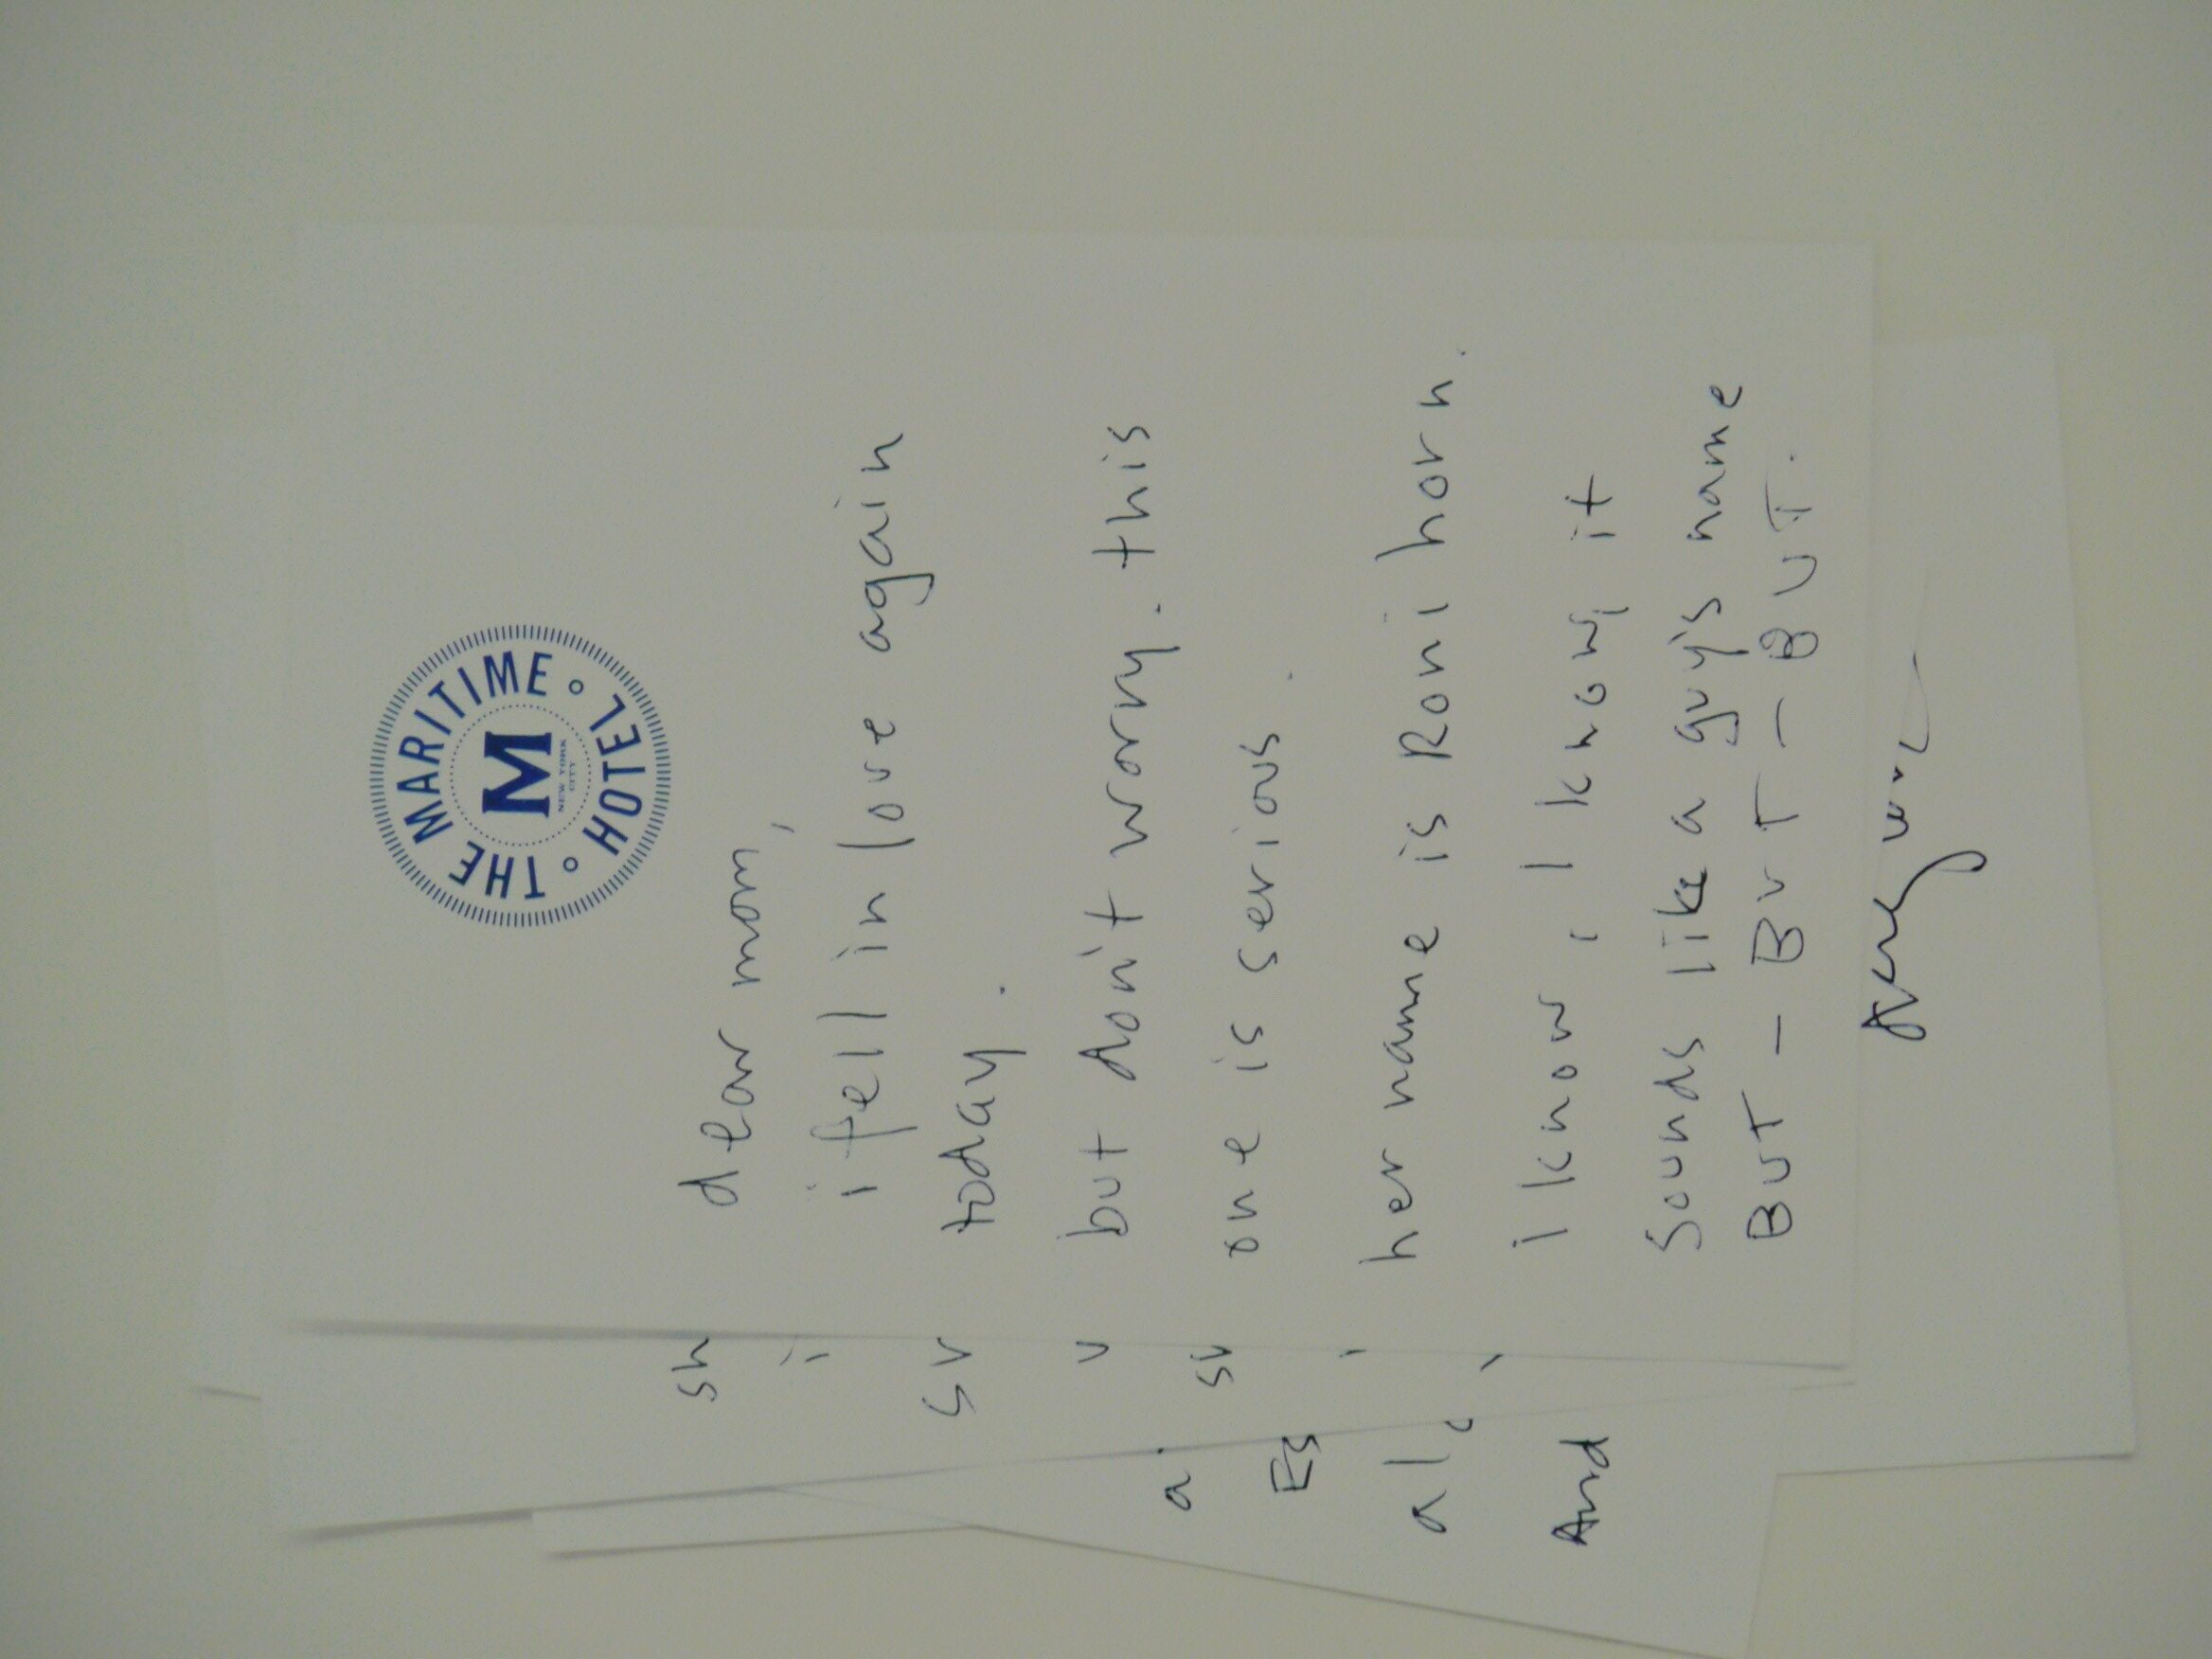 THE MARITIME HOTEL
M
NEW YORK
CITY
dear mom,
i fell in love again
today.
but don't worry. this
one is serious.
her name is Roni horn.
i know, i know, it
sounds like a guy's name
BUT - BUT - BUT.
And